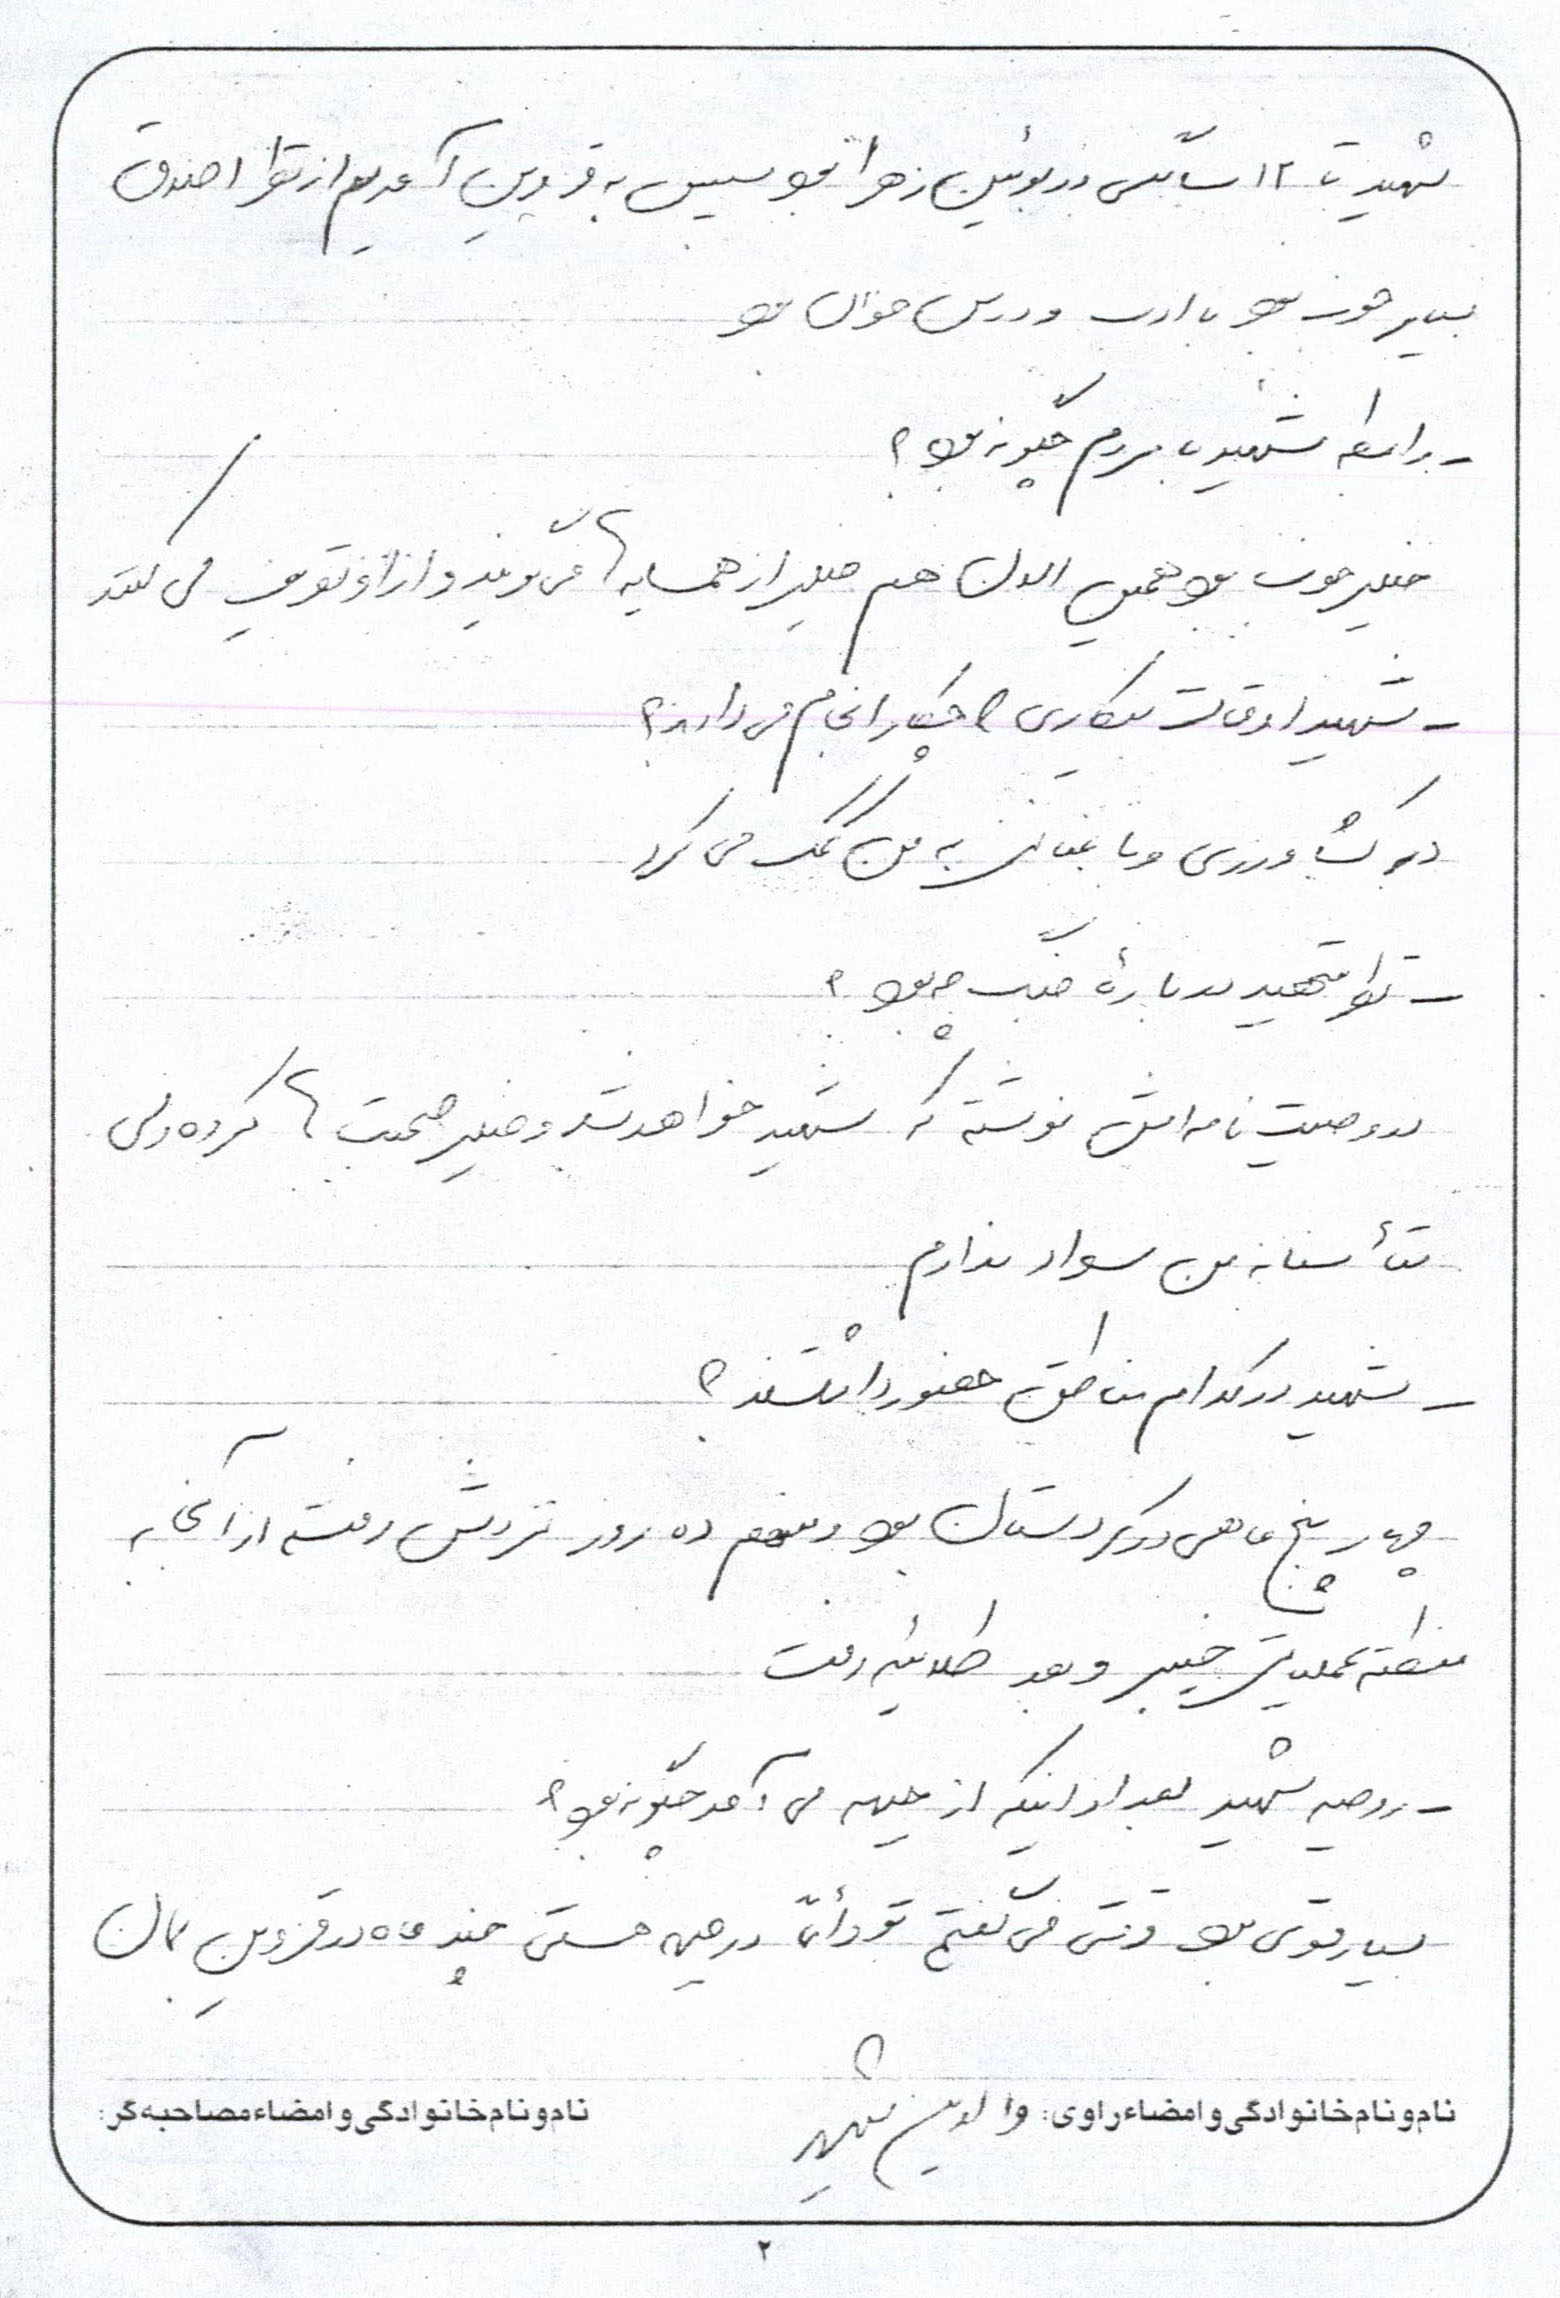 شهید تا ۱۲ سالگی در بوئین زهرا بود سپس به قزوین آمدیم از نظر اخلاق
بسیار خوب بود با ادب و درس خوان بود
- رابطه شهید با مردم چگونه بود؟
خیلی خوب بود همین الان هم خیلی از همسایه ها می گویند و از او تعریف می کنند
- شهید اوقات بیکاری چکار انجام می دادند؟
در کشاورزی و باغبانی به من کمک می کرد
- نظر شهید درباره جنگ چه بود؟
در وصیت نامه اش نوشته که شهید خواهد شد و خیلی صحبت ها کرده ولی
متأسفانه من سواد ندارم
- شهید در کدام مناطق حضور داشتند؟
چهار پنج ماهی در کردستان بود و منهم ده روز نزدش رفته از آنجا به
منطقه عملیاتی خیبر و بعد طلائیه رفت
- روحیه شهید بعد از اینکه از جبهه می آمد چگونه بود؟
بسیار قوی بود وقتی می گفتم تو دائماً در جبهه هستی چند ماه در قزوین بمان
نام و نام خانوادگی و امضاء راوی: والدین شهید
نام و نام خانوادگی و امضاء مصاحبه گر:
۲